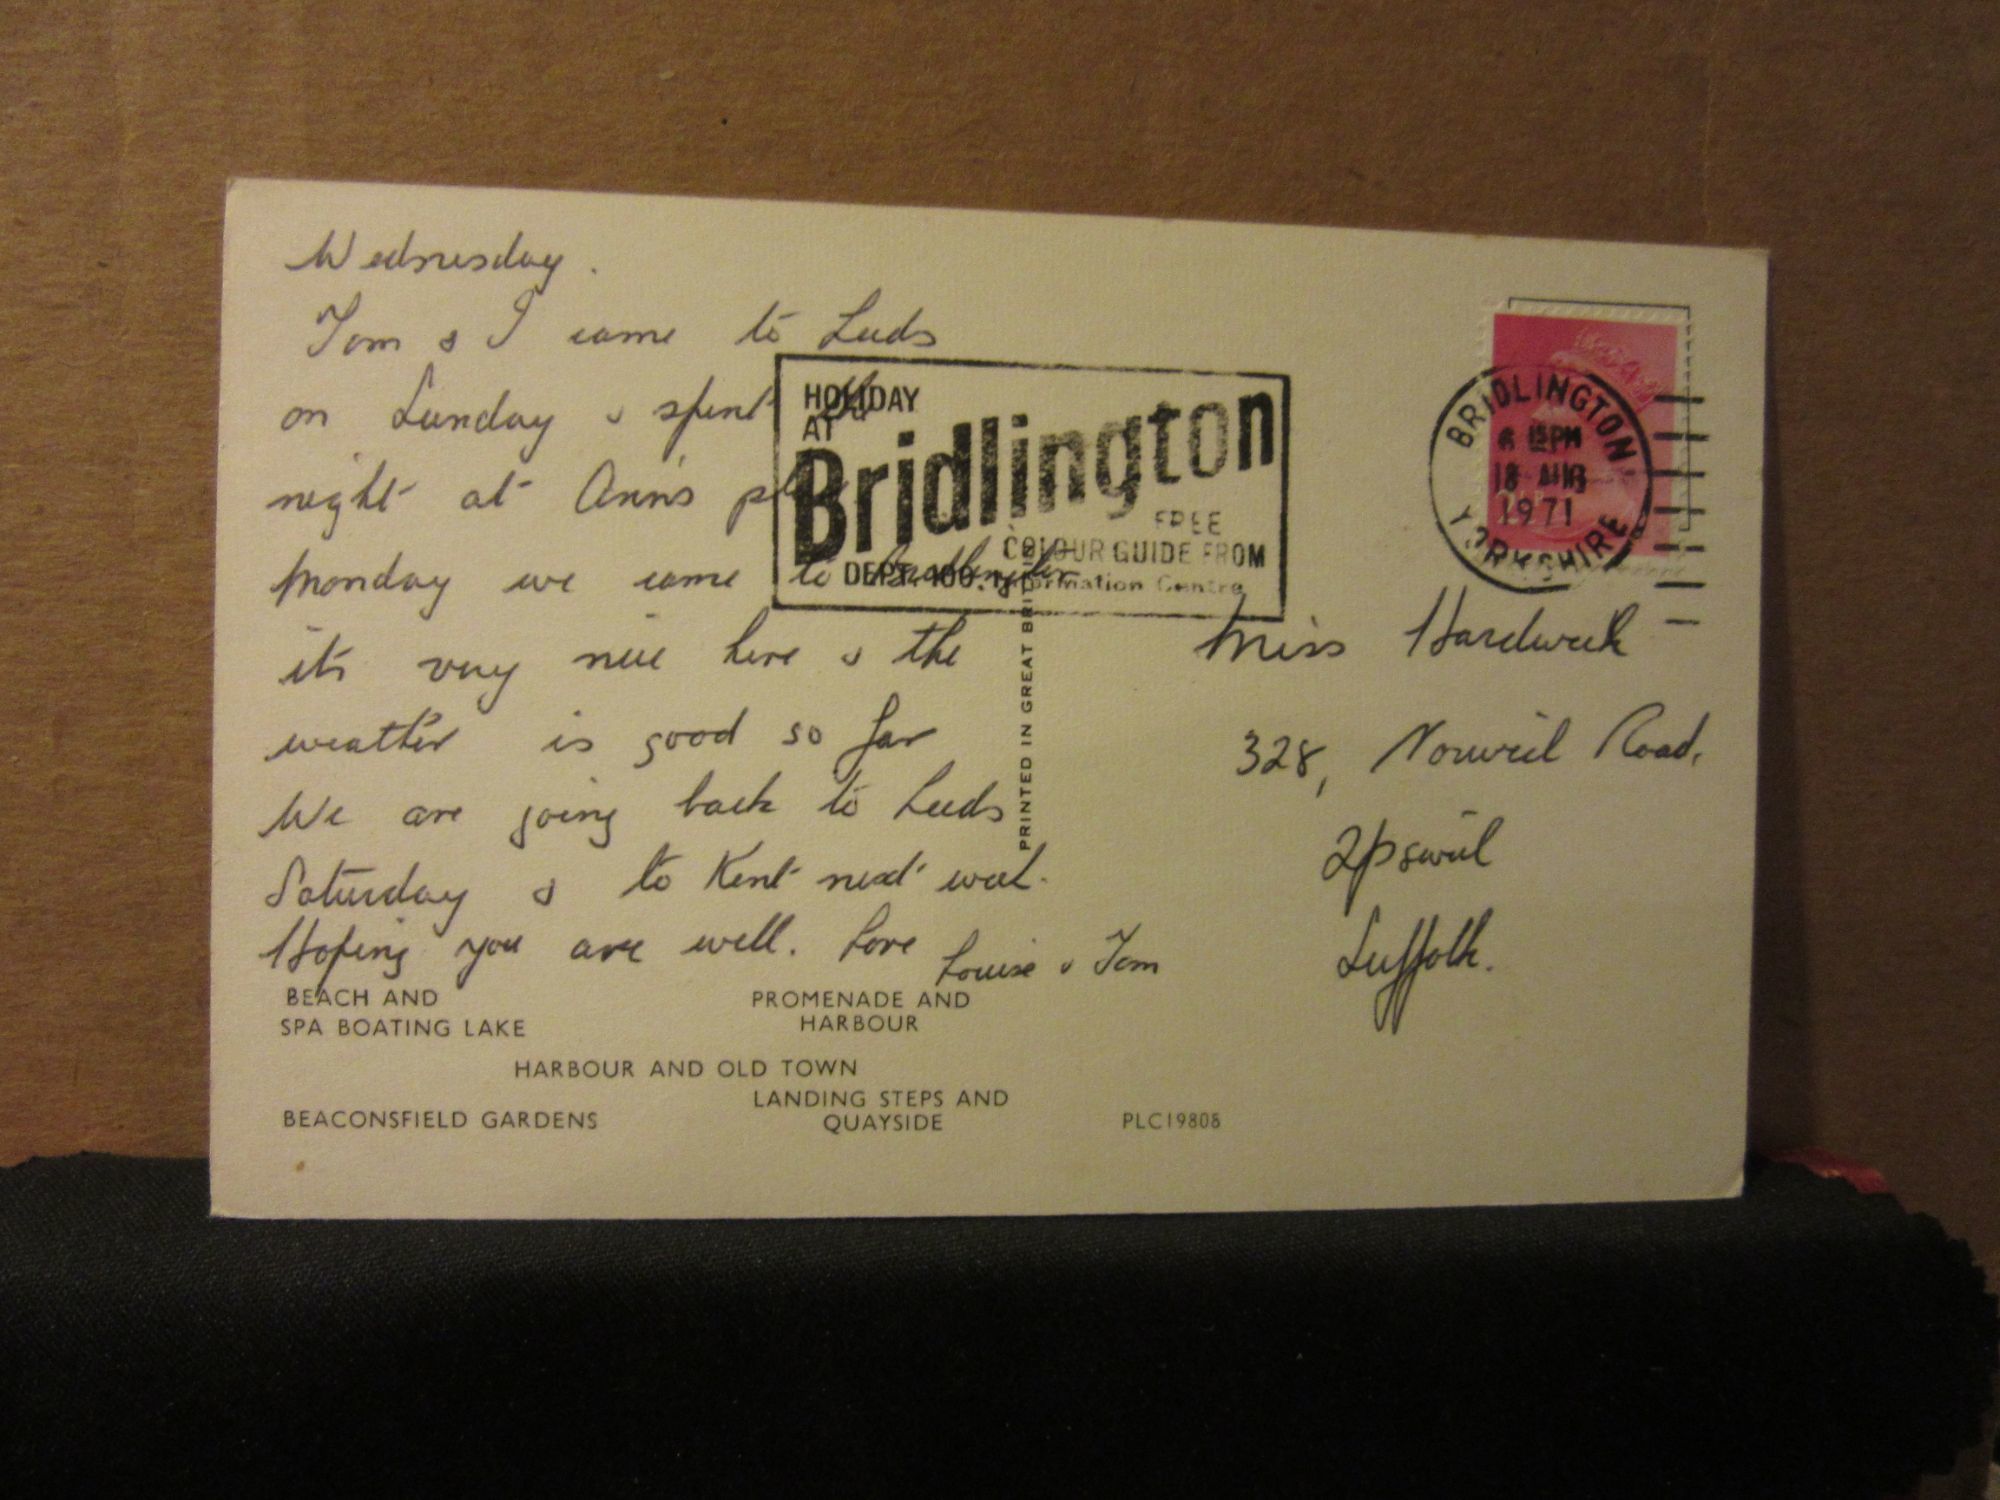 Wednesday.
Tom & I came to Leeds
on Sunday & spent the
night at Ann's place
Monday we came to Bridlington
its very nice here & the
weather is good so far
We are going back to Leeds
Saturday & to Kent next week.
Hoping you are well. Love Louise & Tom
HOLIDAY
AT
Bridlington
FREE
COLOUR GUIDE FROM
DEPT. 100. Information Centre
PRINTED IN GREAT BRITAIN
BRIDLINGTON
6 15 PM
18 AUG
1971
YORKSHIRE
Miss Hardwick
328, Norwich Road,
Ipswich
Suffolk.
BEACH AND
SPA BOATING LAKE
PROMENADE AND
HARBOUR
HARBOUR AND OLD TOWN
BEACONSFIELD GARDENS
LANDING STEPS AND
QUAYSIDE
PLC19808